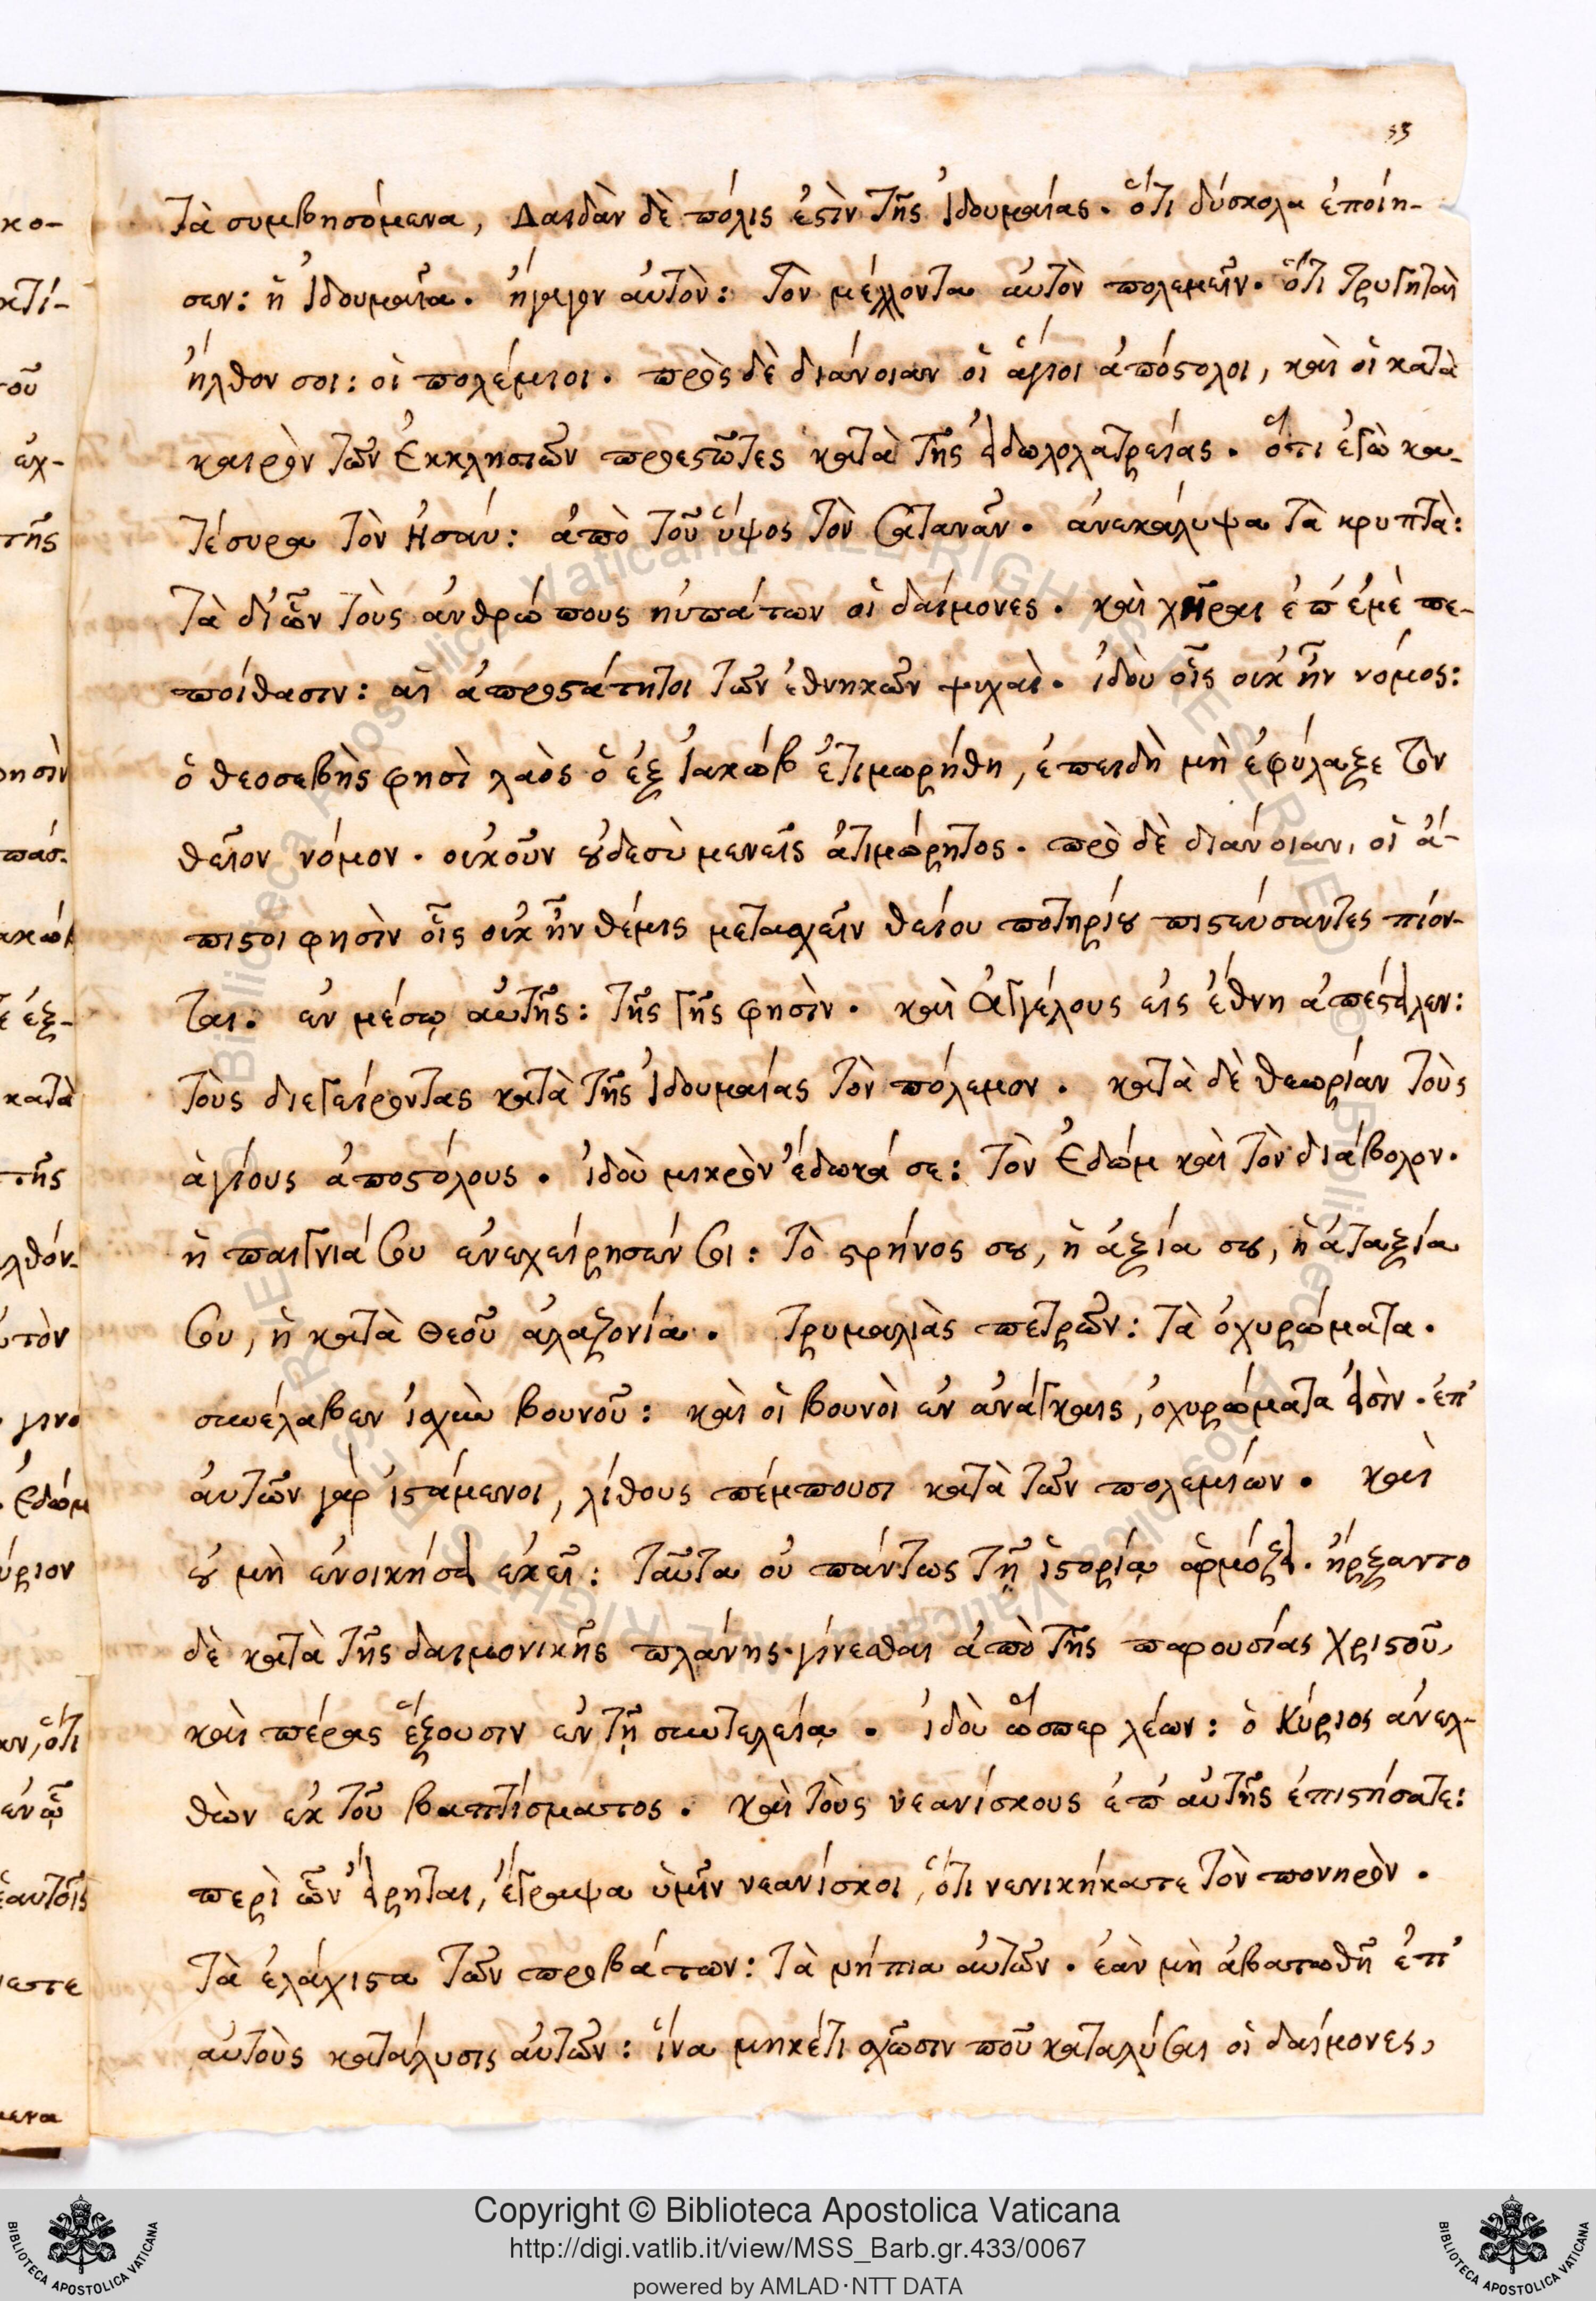 33
τὰ συμβησόμενα, Δαιδὰν δὲ πόλις ἐστὶν τῆς Ἰδουμαίας. ὅτι δύσκολα ἐποίη-
σεν: ἡ Ἰδουμαῖα. ἤγαγον αὐτὸν: τὸν μέλλοντα αὐτὸν πολεμεῖν. ὅτι τρυγηταὶ
ἦλθον σοι: οἱ πολέμιοι. πρὸς δὲ διάνοιαν οἱ ἅγιοι ἀπόστολοι, καὶ οἱ κατὰ
καιρὸν τῶν Ἐκκλησιῶν προεστῶτες κατὰ τῆς εἰδωλολατρείας. ὅτι ἐγὼ κα-
τέσυρα τὸν Ἠσαύ: ἀπὸ τοῦ ὕψος τὸν Σατανᾶν. ἀνεκάλυψα τὰ κρυπτὰ:
τὰ δι' ὧν τοὺς ἀνθρώπους ηὐπάτων οἱ δαίμονες. καὶ χῆραι ἐπ' ἐμὲ πε-
ποίθασιν: αἱ ἀπροστάτητοι τῶν ἐθνηκῶν ψυχαὶ. ἰδοὺ οἷς οὐκ ἦν νόμος:
ὁ θεοσεβὴς φησὶ λαὸς ὁ ἐξ Ἰακὼβ ἐτιμωρήθη, ἐπειδὴ μὴ ἐφύλαξε τὸν
θεῖον νόμον. οὐκοῦν οὐδὲ σὺ μενεῖς ἀτιμώρητος. πρὸ δὲ διάνοιαν, οἱ ἄ-
πιστοι φησὶν οἷς οὐκ ἦν θέμις μετασχεῖν θείου ποτηρίου πιστεύσαντες πίον-
ται. ἐν μέσῳ αὐτῆς: τῆς γῆς φησὶν. καὶ Ἀγγέλους εἰς ἔθνη ἀπέστειλεν:
τοὺς διεγείροντας κατὰ τῆς Ἰδουμαίας τὸν πόλεμον. κατὰ δὲ θεωρίαν τοὺς
ἁγίους ἀποστόλους. ἰδοὺ μικρὸν ἔδωκά σε: τὸν Ἐδώμ καὶ τὸν διάβολον.
ἡ παιγνιά σου ἐνεχείρησέν σοι: τὸ στρήνος σου, ἡ ἀξία σου, ἡ ἀταξία
σου, ἡ κατὰ Θεοῦ ἀλαζονία. τρυμαλιὰς πετρῶν: τὰ ὀχυρώματα.
συνέλαβεν ἰσχὺν βουνοῦ: καὶ οἱ βουνοὶ ἐν ἀνάγκαις, ὀχυρώματα εἰσὶν. ἐπ'
αὐτῶν γὰρ ἱστάμενοι, λίθους πέμπουσι κατὰ τῶν πολεμίων. καὶ
οὐ μὴ ἐνοικήσει ἐκεῖ: ταῦτα οὐ πάντως τῇ ἱστορίᾳ ἁρμόζει. ἤρξαντο
δὲ κατὰ τῆς δαιμονικῆς πλάνης γίνεσθαι ἀπὸ τῆς παρουσίας Χριστοῦ,
καὶ πέρας ἕξουσιν ἐν τῇ συντελείᾳ. ἰδοὺ ὥσπερ λέων: ὁ Κύριος ἀνελ-
θὼν ἐκ τοῦ βαπτίσματος. καὶ τοὺς νεανίσκους ἐπ' αὐτῆς ἐπιστήσατε:
περὶ ὧν εἴρηται, ἔγραψα ὑμῖν νεανίσκοι, ὅτι νενικήκατε τὸν πονηρὸν.
τὰ ἐλάχιστα τῶν προβάτων: τὰ νήπια αὐτῶν. ἐὰν μὴ ἀβατωθῇ ἐπ'
αὐτοὺς κατάλυσις αὐτῶν: ἵνα μηκέτι σχῶσιν ποῦ καταλύσαι οἱ δαίμονες,
Copyright © Biblioteca Apostolica Vaticana
http://digi.vatlib.it/view/MSS_Barb.gr.433/0067
powered by AMLAD·NTT DATA